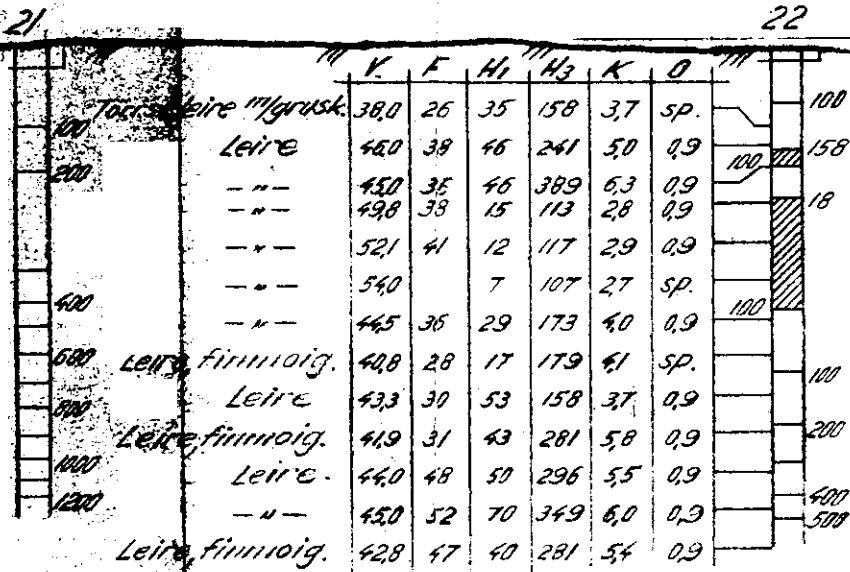 21
22
V. F H1 H3 K O
Tørrskleire m/grusk. 38,0 26 35 158 3,7 sp.
Leire 46,0 38 46 241 5,0 0,9
— " — 45,0 36 46 389 6,3 0,9
— " — 49,8 38 15 113 2,8 0,9
— " — 52,1 41 12 117 2,9 0,9
— " — 54,0 7 107 2,7 sp.
— " — 44,5 36 29 173 4,0 0,9
Leire, finmoig. 40,8 28 17 179 4,1 sp.
Leire 43,3 30 53 158 3,7 0,9
Leire, finmoig. 41,9 31 43 281 5,8 0,9
Leire. 44,0 48 50 296 5,5 0,9
— " — 45,0 52 70 349 6,0 0,9
Leire, finmoig. 42,8 47 40 281 5,4 0,9
100
200
400
600
800
1000
1200
100
158
100
18
100
100
200
400
500